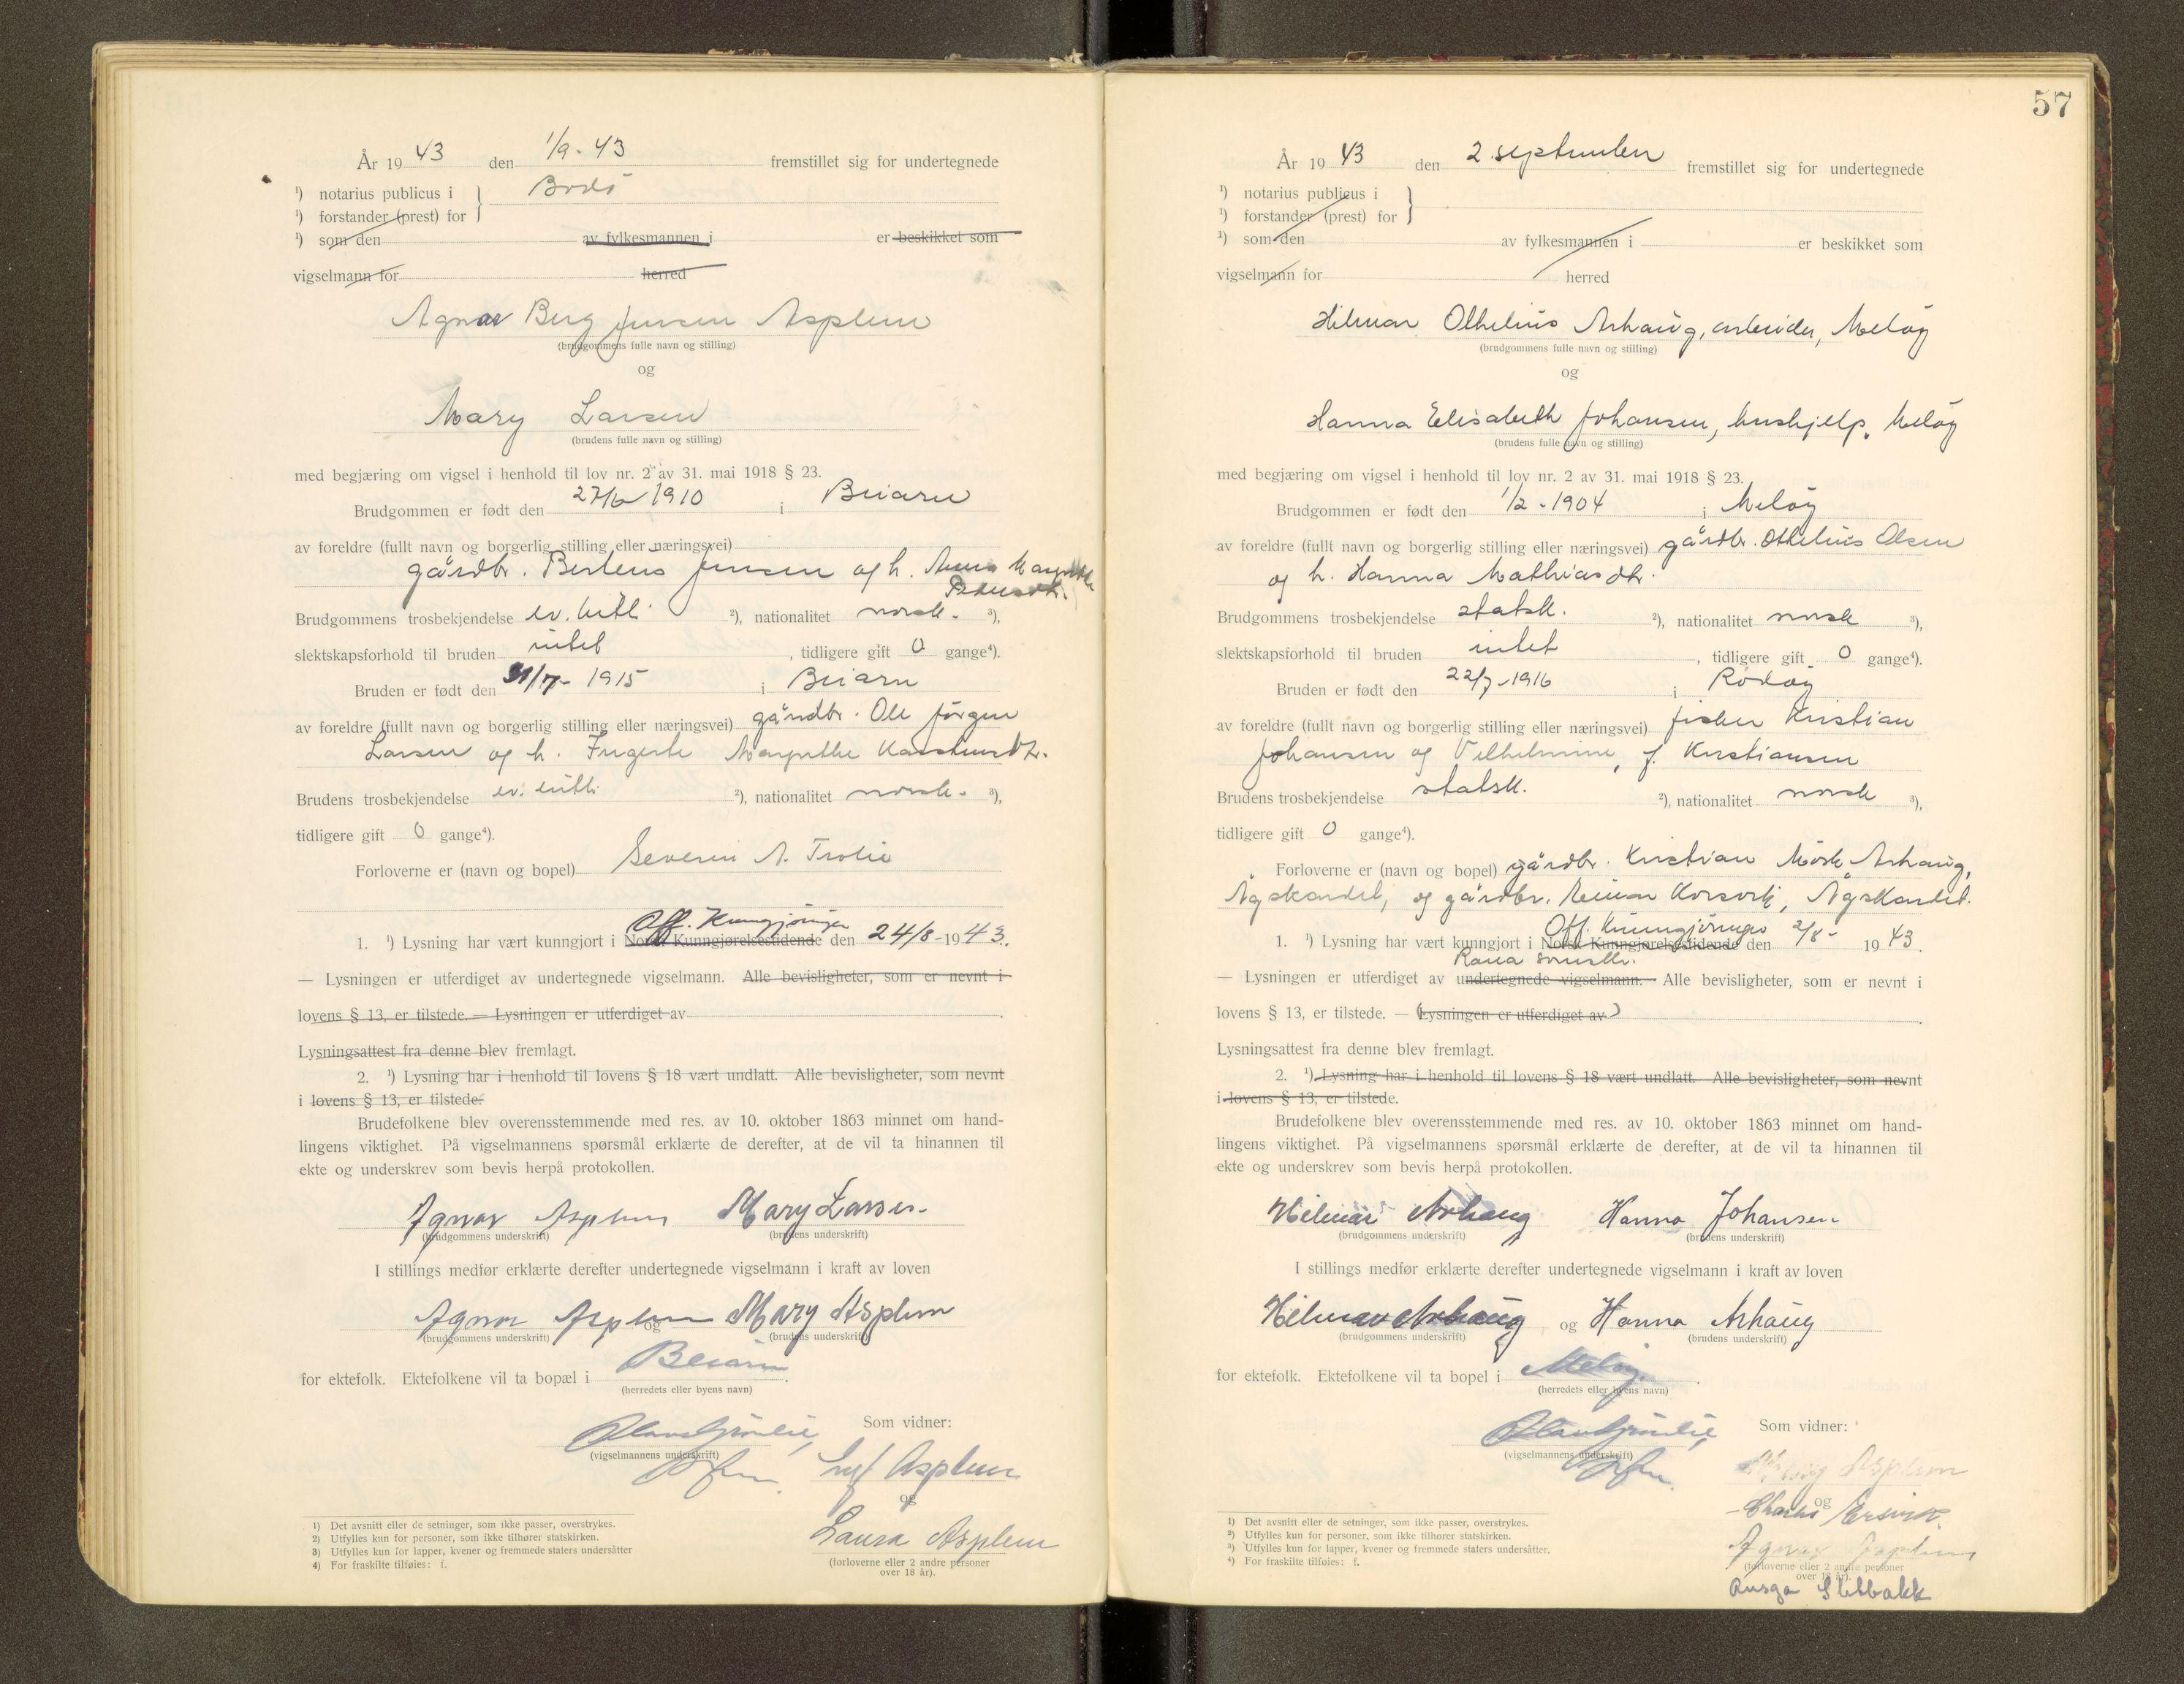 År 19 43 den 1/9 - 43 fremstillet sig for undertegnede
¹) notarius publicus i } Bodö
¹) forstander (prest) for
¹) som den av fylkesmannen i er beskikket som
vigselmann for herred
Agnar Berg Jensen Asplem
(brudgommens fulle navn og stilling)
og
Mary Larsen
(brudens fulle navn og stilling)
med begjæring om vigsel i henhold til lov nr. 2 av 31. mai 1918 § 23.
Brudgommen er født den 27/6 1910 i Beiarn
av foreldre (fullt navn og borgerlig stilling eller næringsvei)
gårdbr. Jensen og h. Anna
Brudgommens trosbekjendelse ev. luth. ²), nationalitet norsk. ³),
slektskapsforhold til bruden intet, tidligere gift 0 gange⁴).
Bruden er født den 31/7 - 1915 i Beiarn
av foreldre (fullt navn og borgerlig stilling eller næringsvei) gårdbr. Ole Jörgen
Larsen og h. Margrethe
Brudens trosbekjendelse ev. luth. ²), nationalitet norsk. ³),
tidligere gift 0 gange⁴).
Forloverne er (navn og bopel) Severin A. Trolie
Off. Kunngjöringer
1. ¹) Lysning har vært kunngjort i Norsk Kunngjørelsestidende den 24/8 - 19 43.
— Lysningen er utferdiget av undertegnede vigselmann. Alle bevisligheter, som er nevnt i
lovens § 13, er tilstede. — Lysningen er utferdiget av .
Lysningsattest fra denne blev fremlagt.
2. ¹) Lysning har i henhold til lovens § 18 vært undlatt. Alle bevisligheter, som nevnt
i lovens § 13, er tilstede.
Brudefolkene blev overensstemmende med res. av 10. oktober 1863 minnet om hand-
lingens viktighet. På vigselmannens spørsmål erklærte de derefter, at de vil ta hinannen til
ekte og underskrev som bevis herpå protokollen.
Agnar Asplem Mary Larsen.
(brudgommens underskrift) (brudens underskrift)
I stillings medfør erklærte derefter undertegnede vigselmann i kraft av loven
Agnar Asplem og Mary Asplem
(brudgommens underskrift) (brudens underskrift)
for ektefolk. Ektefolkene vil ta bopæl i Beiarn.
(herredets eller byens navn)
Som vidner:
(vigselmannens underskrift)
Asplem
og
Laura Asplem
(forloverne eller 2 andre personer
over 18 år).
1) Det avsnitt eller de setninger, som ikke passer, overstrykes.
2) Utfylles kun for personer, som ikke tilhører statskirken.
3) Utfylles kun for lapper, kvener og fremmede staters undersåtter
4) For fraskilte tilføies: f.
57
År 19 43 den 2. september fremstillet sig for undertegnede
¹) notarius publicus i }
¹) forstander (prest) for
¹) som den av fylkesmannen i er beskikket som
vigselmann for herred
Hilmar Othelius Arhaug, arbeider, Melöy
(brudgommens fulle navn og stilling)
og
Hanna Elisabeth Johansen, hushjelp, Melöy
(brudens fulle navn og stilling)
med begjæring om vigsel i henhold til lov nr. 2 av 31. mai 1918 § 23.
Brudgommen er født den 1/2 - 1904 i Melöy
av foreldre (fullt navn og borgerlig stilling eller næringsvei) gårdbr. Othelius Olsen
og h. Hanna Mathiasdtr.
Brudgommens trosbekjendelse statsk. ²), nationalitet norsk ³),
slektskapsforhold til bruden intet, tidligere gift 0 gange⁴).
Bruden er født den 22/7 - 1916 i Rödöy
av foreldre (fullt navn og borgerlig stilling eller næringsvei) fisker Kristian
Johansen og Vilhelmine, f. Kristiansen
Brudens trosbekjendelse statsk. ²), nationalitet norsk ³),
tidligere gift 0 gange⁴).
Forloverne er (navn og bopel) gårdbr. Kristian Mörk Arhaug,
Ågskardet, og gårdbr. Einar Korsvik, Ågskardet.
Off. Kunngjöringer
1. ¹) Lysning har vært kunngjort i Norsk Kunngjørelsestidende den 2/8 - 19 43.
Rana
— Lysningen er utferdiget av undertegnede vigselmann. Alle bevisligheter, som er nevnt i
lovens § 13, er tilstede. — (Lysningen er utferdiget av) .
Lysningsattest fra denne blev fremlagt.
2. ¹) Lysning har i henhold til lovens § 18 vært undlatt. Alle bevisligheter, som nevnt
i lovens § 13, er tilstede.
Brudefolkene blev overensstemmende med res. av 10. oktober 1863 minnet om hand-
lingens viktighet. På vigselmannens spørsmål erklærte de derefter, at de vil ta hinannen til
ekte og underskrev som bevis herpå protokollen.
Hilmar Arhaug Hanna Johansen
(brudgommens underskrift) (brudens underskrift)
I stillings medfør erklærte derefter undertegnede vigselmann i kraft av loven
Hilmar Arhaug og Hanna Arhaug
(brudgommens underskrift) (brudens underskrift)
for ektefolk. Ektefolkene vil ta bopel i Melöy.
(herredets eller byens navn)
Som vidner:
(vigselmannens underskrift)
Mary Asplem
og
Charles
Agnar Asplem
(forloverne eller 2 andre personer
over 18 år).
1) Det avsnitt eller de setninger, som ikke passer, overstrykes.
2) Utfylles kun for personer, som ikke tilhører statskirken.
3) Utfylles kun for lapper, kvener og fremmede staters undersåtter.
4) For fraskilte tilføies: f.